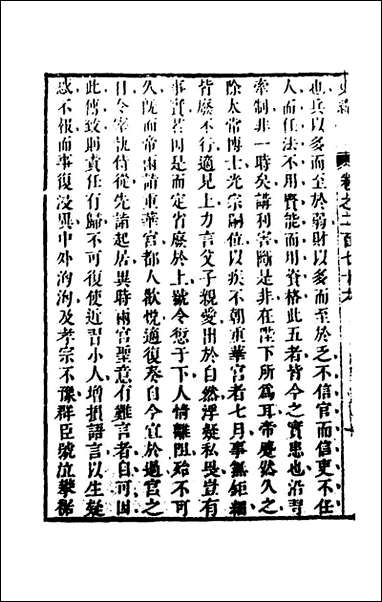 史緯 卷之二百七十
也兵以多而至於弱財以多而至於乏不信官而信吏不任
人而任法不用賢能而用資格此五者皆今之實患也沿習
牽制非一時矣講利害斷是非在陛下所爲耳帝蹙然久之
除太常博士光宗嗣位以疾不朝重華宮者七月事無鉅細
皆廢不行適見上力言父子親愛出於自然浮疑私畏豈有
事實若因是而定省廢於上號令愆于下人情離阻殆不可
久旣而帝兩詣重華宮都人歡悅適復奏自今宜於過宮之
日令宰執侍從先詣起居異時兩宮聖意有難言者自可因
此傳致則責任有歸不可復使近習小人增損語言以生疑
惑不報而事復浸異中外洶洶及孝宗不豫群臣號泣攀裾